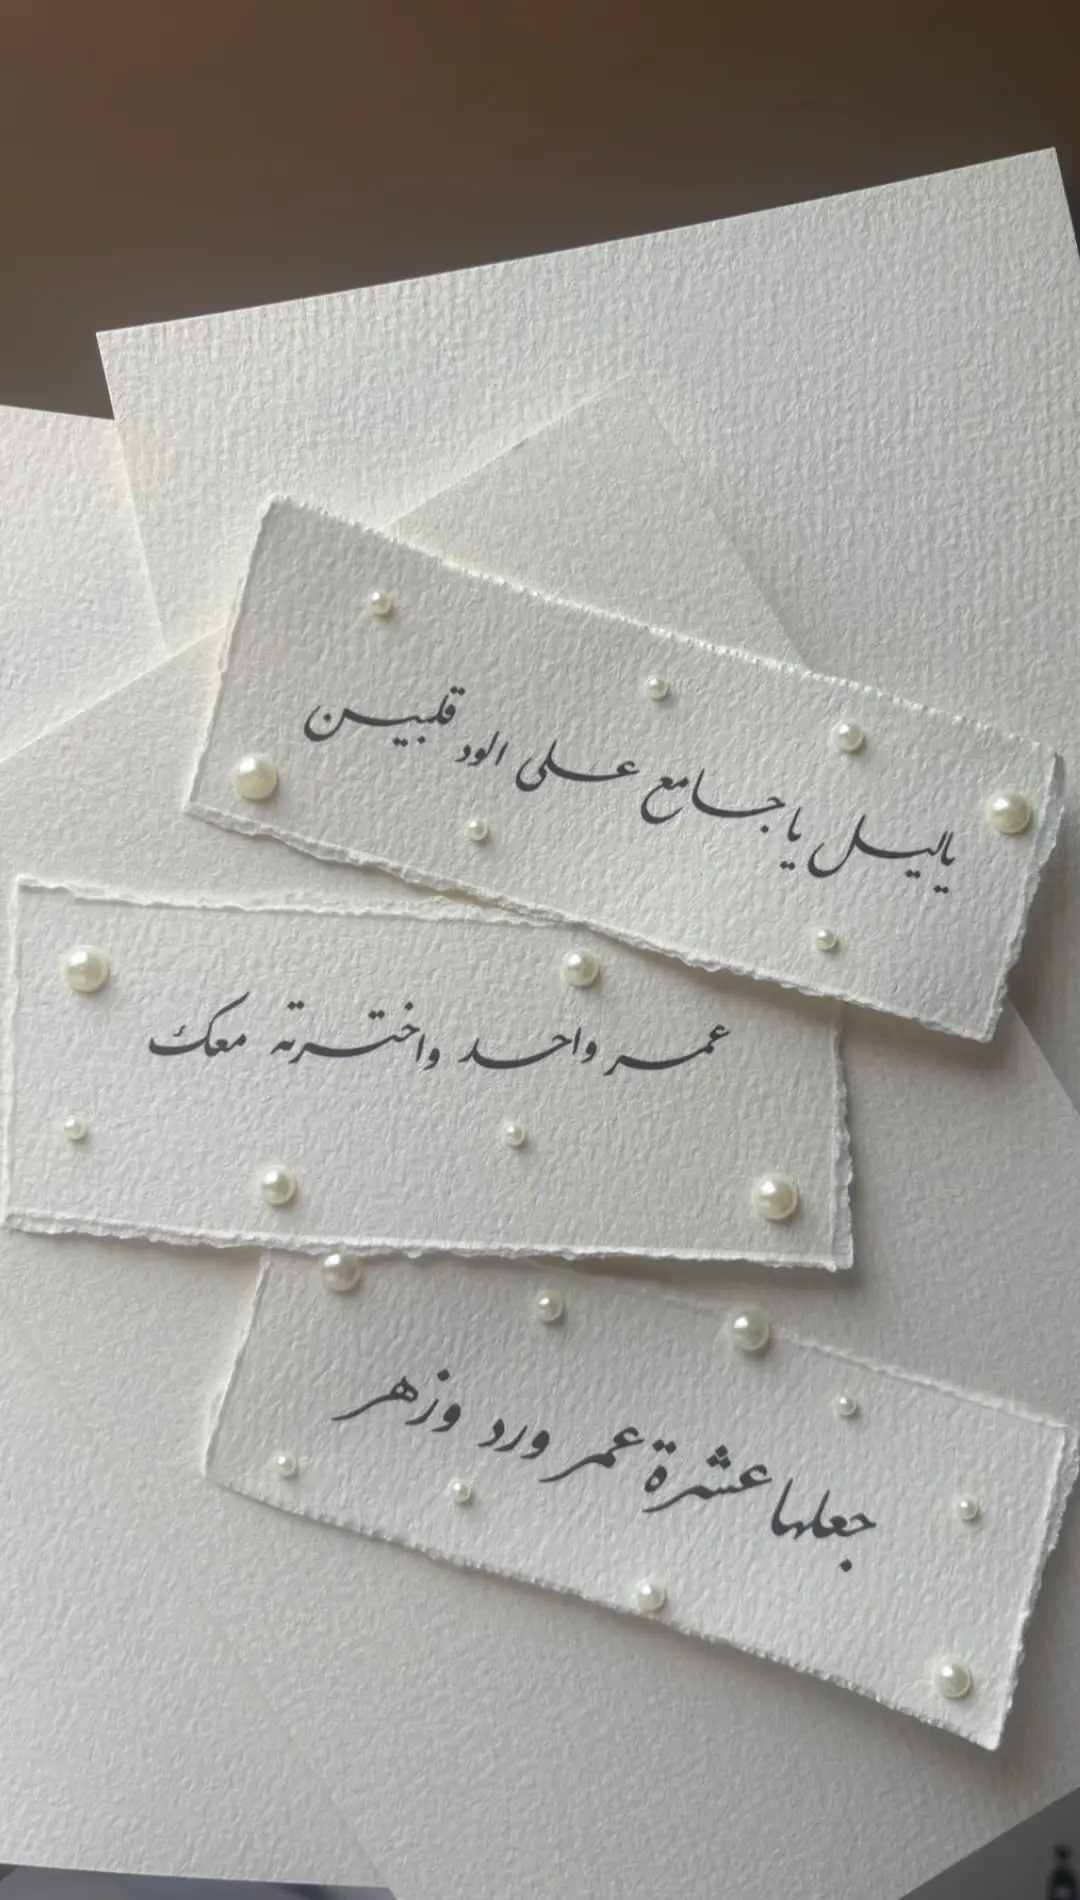 ياليل يا جامع على الود قلبين
عمر واحد واخترته معك
جعلها عشرة عمر ورد وزهر